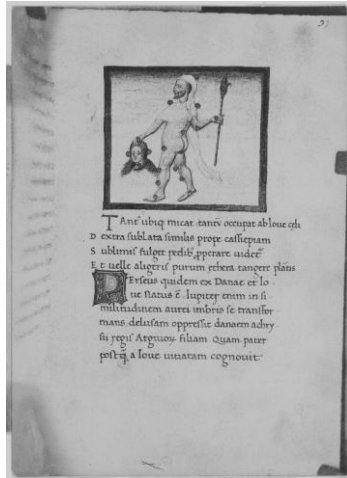 37
TAnt' ubiq micat tantū occupat ab Ioue cęli
D extra sublata similis prope cassiepiam
S ublimis fulget pedib; pperare uidet'
E t uelle aligeris purum ęthera tangere plātis
PErseus quidem ex Danae et Io
ue natus ē. Iupiter enim in si
militudinem aurei imbris se transfor
mans. delusam oppressit danaem achry
sii regis Argiuoꝝ filiam. Quam pater
postꝙ̃ a Ioue uitiatam cognouit